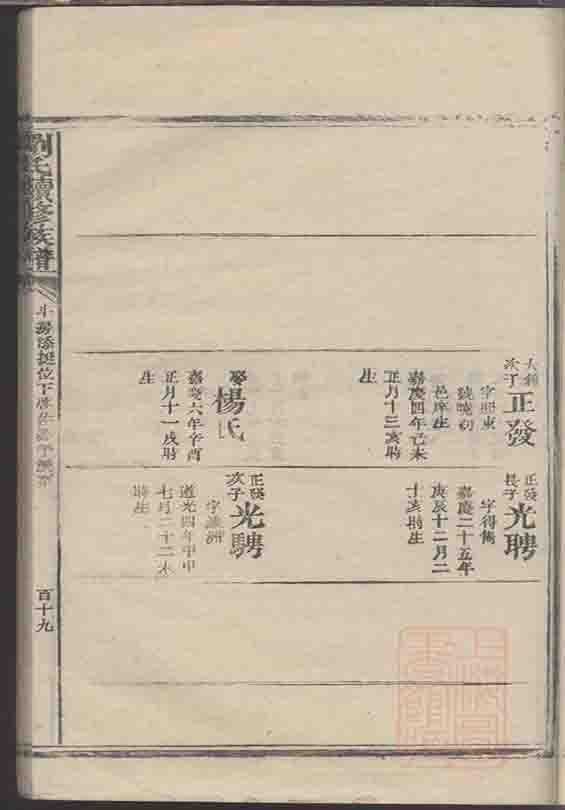 劉氏續修族譜
百十九
次子
正發
字熙東
號曉初
邑庠生
嘉慶四年己未
正月十三亥時
生
娶
楊氏
嘉慶六年辛酉
正月十一戌時
生
正發
長子
光聘
字得儁
嘉慶二十五年
庚辰十二月二
十亥時生
正發
次子
光騁
道光四年甲申
七月二十二未
時生